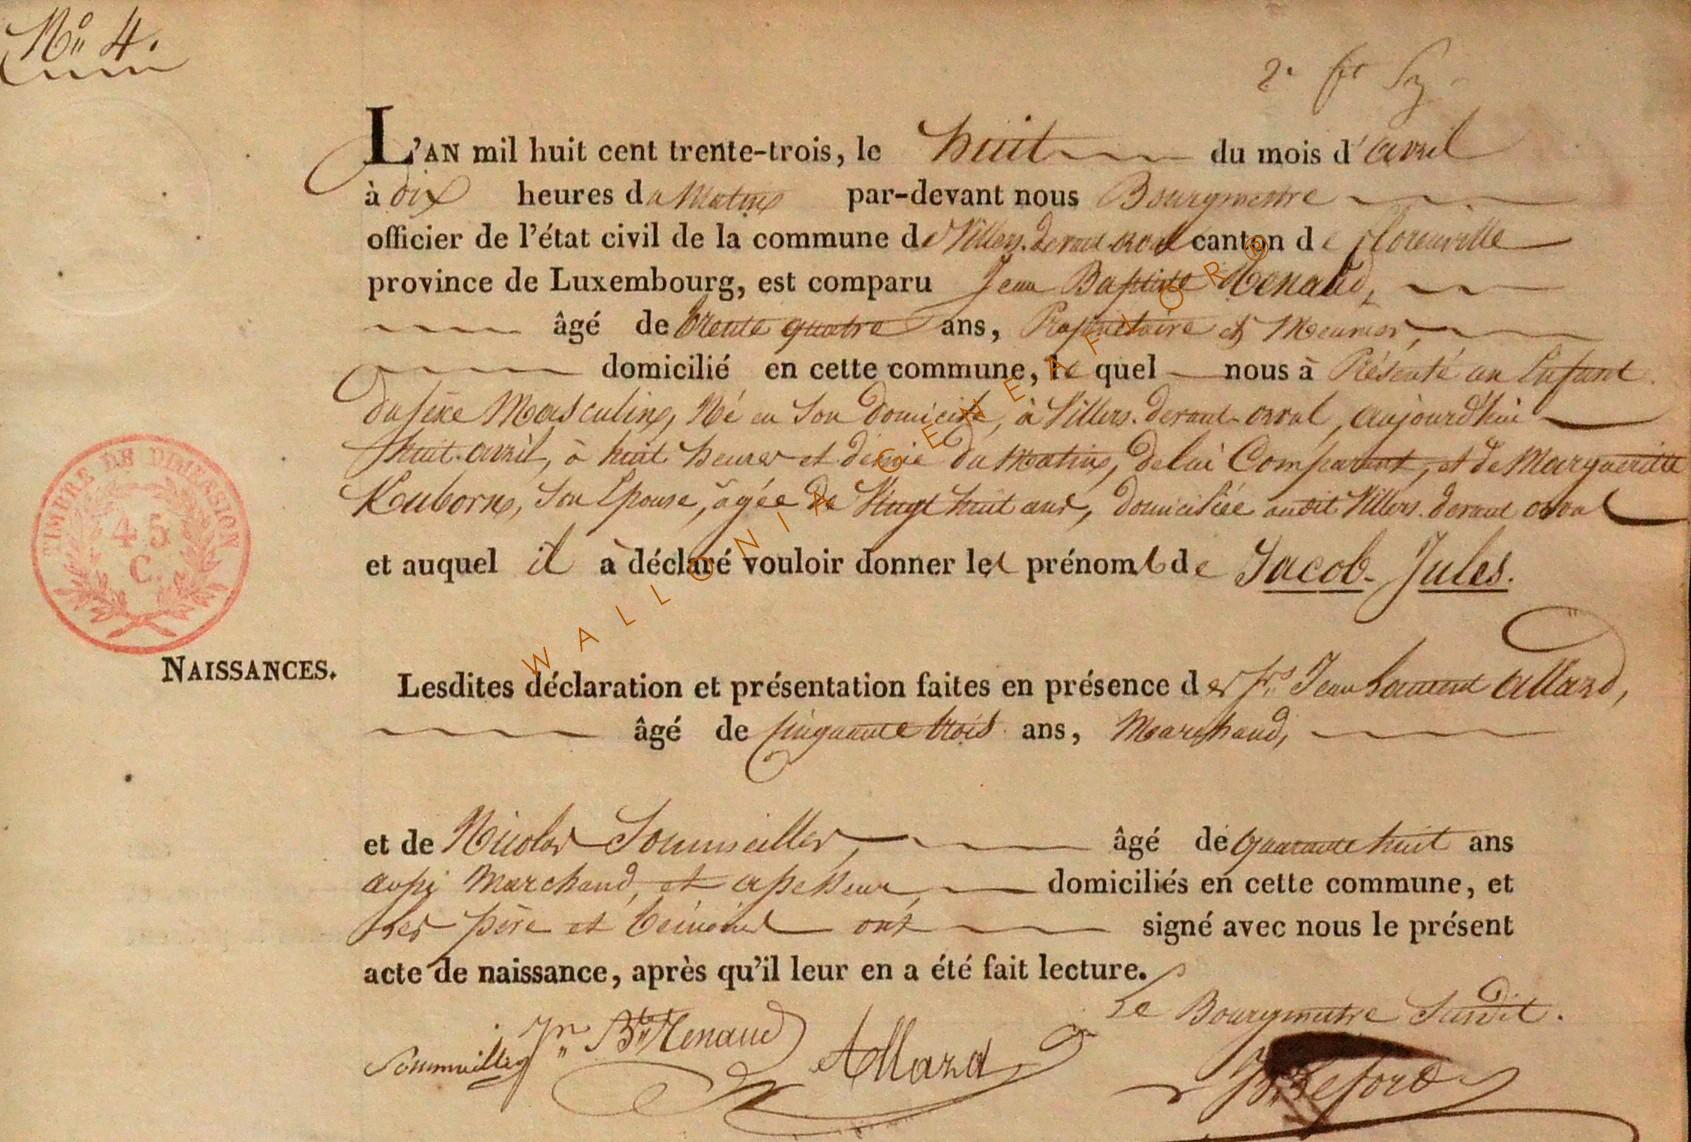 No 4.
L'AN mil huit cent trente-trois, le huit du mois d'avril
à dix heures du Matin par-devant nous Bourgmestre
officier de l'état civil de la commune de Villers-devant-orval canton de florenville
province de Luxembourg, est comparu Jean Baptiste Henaud,
âgé de trente quatre ans, Propriétaire et Meunier,
domicilié en cette commune, le quel nous à Présenté un Enfant
du sexe Masculin, Né en son domicile, à Villers-devant-orval, aujourd'hui
huit avril, à huit heures et demie du matin, de lui Comparant, et de Margueritte
Kuborn, son Epouse, âgée de Vingt huit ans, domiciliée audit Villers-devant orval
et auquel il à déclaré vouloir donner les prénoms de Jacob-Jules.
NAISSANCES.
Lesdites déclaration et présentation faites en présence des Srs Jean Laurent Allard,
âgé de Cinquante trois ans, Marchand,
et de Nicolas Sommeiller, âgé de quarante huit ans
aussi Marchand, et assesseur, domiciliés en cette commune, et
les père et témoins ont signé avec nous le présent
acte de naissance, après qu'il leur en a été fait lecture.
Le Bourgmestre Susdit.
Sommeiller Jn Bte Henaud Allard
TIMBRE DE DIMENSION
45
C.
WALLONIA GENEAFLOR®